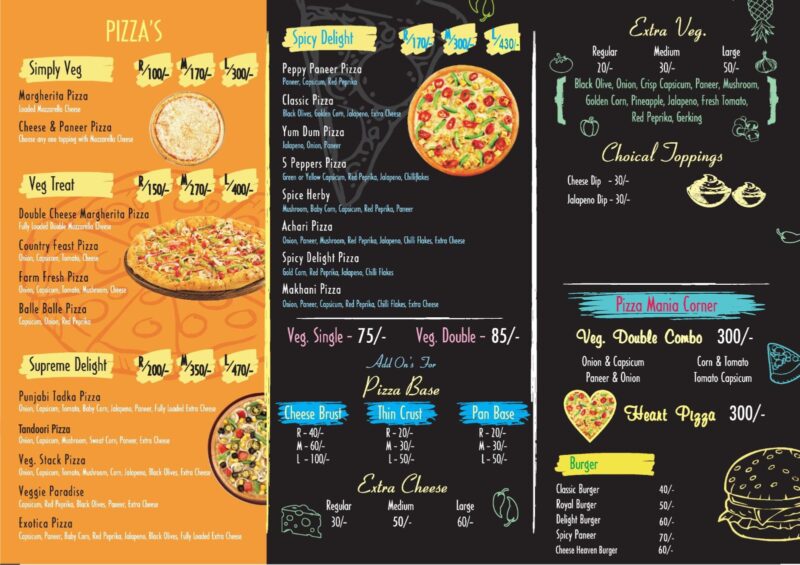 PIZZA'S
Simply Veg R/100/- M/170/- L/300/-
Margherita Pizza
Loaded Mozzarella Cheese
Cheese & Paneer Pizza
Choose any one topping with Mozzarella Cheese
Veg Treat R/150/- M/270/- L/400/-
Double Cheese Margherita Pizza
Fully Loaded Double Mozzarella Cheese
Country Feast Pizza
Onion, Capsicum, Tomato, Cheese
Farm Fresh Pizza
Onion, Capsicum, Tomato, Mushroom, Cheese
Balle Balle Pizza
Capsicum, Onion, Red Peprika
Supreme Delight R/200/- M/350/- L/470/-
Punjabi Tadka Pizza
Onion, Capsicum, Tomato, Baby Corn, Jalapeno, Paneer, Fully Loaded Extra Cheese
Tandoori Pizza
Onion, Capsicum, Mushroom, Sweet Corn, Paneer, Extra Cheese
Veg. Stack Pizza
Onion, Capsicum, Tomato, Mushroom, Corn, Jalapeno, Black Olives, Extra Cheese
Veggie Paradise
Capsicum, Red Peprika, Black Olives, Paneer, Extra Cheese
Exotica Pizza
Capsicum, Paneer, Baby Corn, Red Peprika, Jalapeno, Black Olives, Fully Loaded Extra Cheese
Spicy Delight R/170/- M/300/- L/430/-
Peppy Paneer Pizza
Paneer, Capsicum, Red Peprika
Classic Pizza
Black Olives, Golden Corn, Jalapeno, Extra Cheese
Yum Dum Pizza
Jalapeno, Onion, Paneer
5 Peppers Pizza
Green or Yellow Capsicum, Red Peprika, Jalapeno, Chilliflakes
Spice Herby
Mushroom, Baby Corn, Capsicum, Red Peprika, Paneer
Achari Pizza
Onion, Paneer, Mushroom, Red Peprika, Jalapeno, Chilli Flakes, Extra Cheese
Spicy Delight Pizza
Gold Corn, Red Peprika, Jalapeno, Chilli Flakes
Makhani Pizza
Onion, Paneer, Capsicum, Red Peprika, Chilli Flakes, Extra Cheese
Veg. Single - 75/- Veg. Double - 85/-
Add On's For
Pizza Base
Cheese Brust Thin Crust Pan Base
R - 40/- R - 20/- R - 20/-
M - 60/- M - 30/- M - 30/-
L - 100/- L - 50/- L - 50/-
Extra Cheese
Regular Medium Large
30/- 50/- 60/-
Extra Veg.
Regular Medium Large
20/- 30/- 50/-
Black Olive, Onion, Crisp Capsicum, Paneer, Mushroom,
Golden Corn, Pineapple, Jalapeno, Fresh Tomato,
Red Peprika, Gerking
Choical Toppings
Cheese Dip - 30/-
Jalapeno Dip - 30/-
Pizza Mania Corner
Veg. Double Combo 300/-
Onion & Capsicum Corn & Tomato
Paneer & Onion Tomato Capsicum
Heart Pizza 300/-
Burger
Classic Burger 40/-
Royal Burger 50/-
Delight Burger 60/-
Spicy Paneer 70/-
Cheese Heaven Burger 60/-